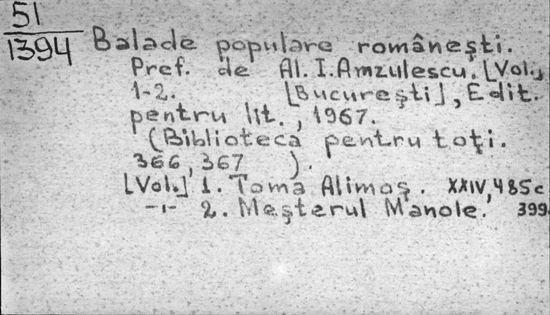 51
1394
Balade populare românești.
Pref. de Al. I. Amzulescu. [Vol.]
1-2. [București], Edit.
pentru lit., 1967.
(Biblioteca pentru toți.
366, 367 ).
[Vol.] 1. Toma Alimoș. XXIV, 485c
-ı- 2. Meșterul Manole. 399